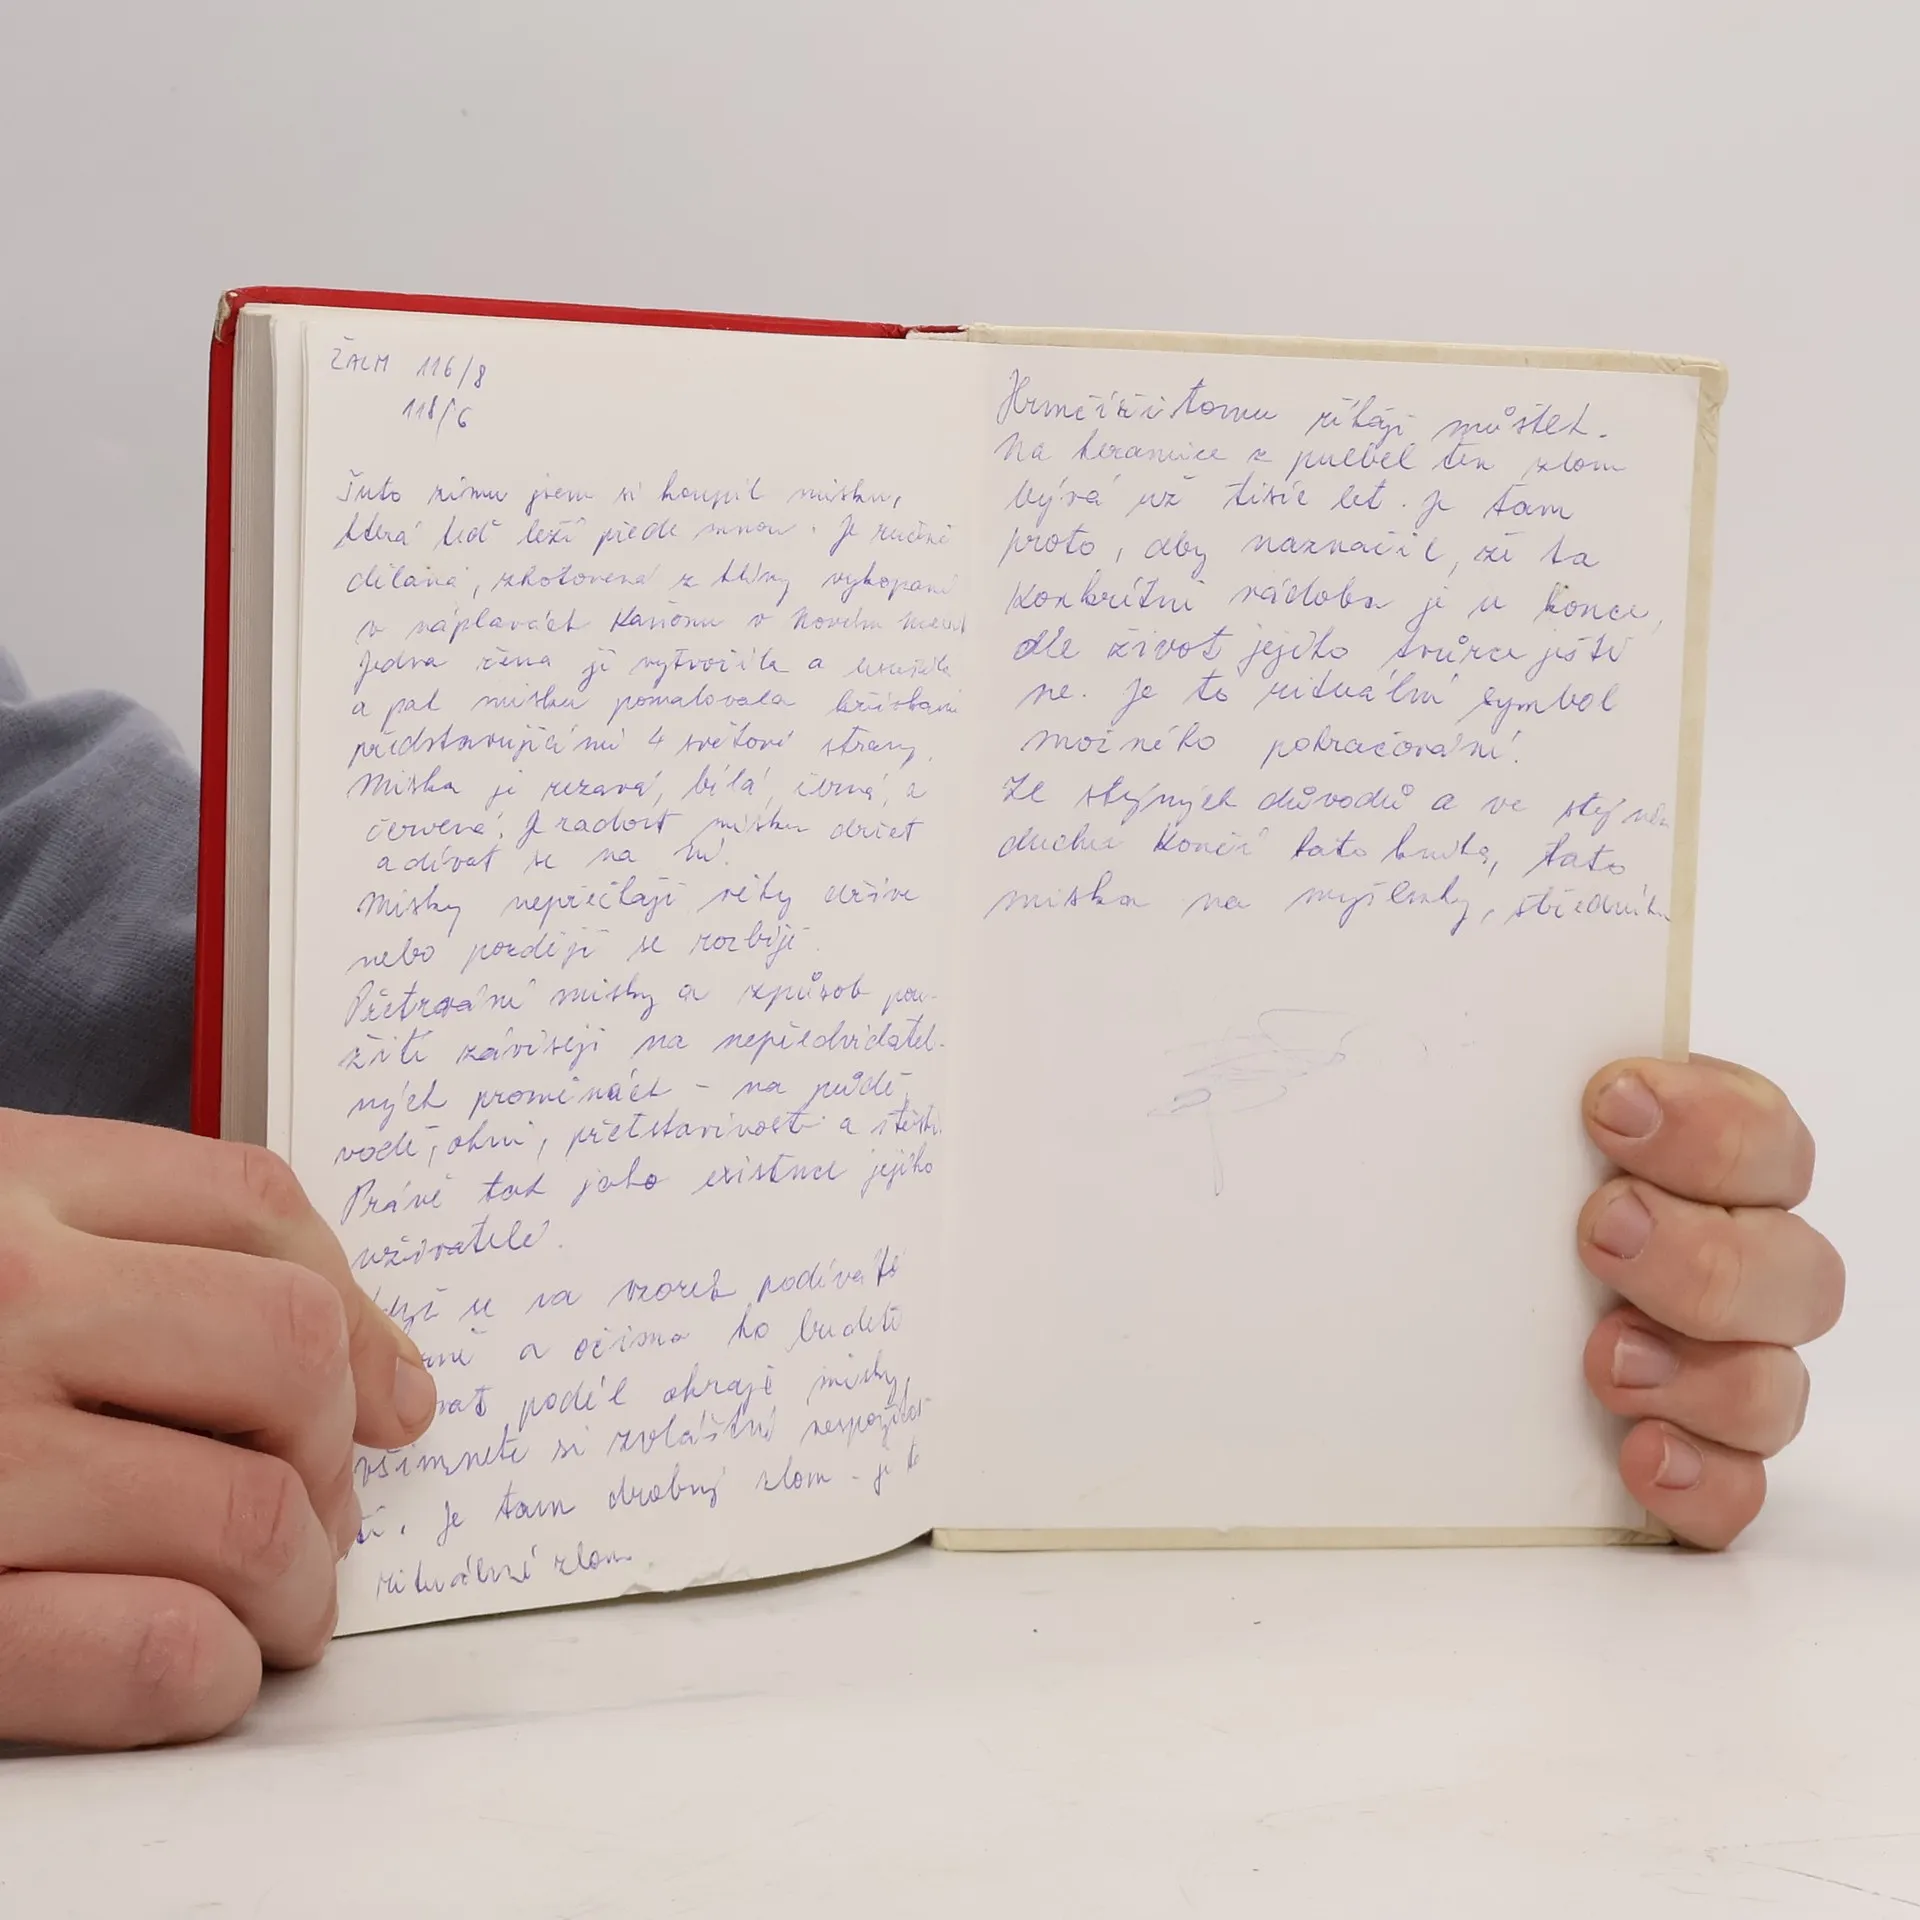 ŽALM 116/8
118/6
Tuto zimu jsem si koupil misku,
která teď leží přede mnou. Je ručně
dělaná, zhotovená z hlíny vykopané
v náplavách Kaňonu v Novém
Jedna žena ji vytvořila a
a pak misku pomalovala
představujícími 4 světové strany.
Miska je rezavá, bílá, černá, a
červená. Je radost misku držet
a dívat se na ni.
Misky nepřečkají věky dříve
nebo později se rozbijí.
Přetrvání misky a způsob pou-
žití závisejí na nepředvídatel-
ných proměnách - na půdě,
vodě, ohni, představivosti a
Právě tak jako existence jejího
uživatele.
se na vzorek podíváte
a očima ho budete
podél okraje misky,
všimnete si zvláštní
Je tam drobný zlom - je to
rituální zlom.
Hrnčíři tomu říkají můstek.
Na keramice z puebel ten zlom
bývá už tisíc let. Je tam
proto, aby naznačil, že ta
Konkrétní nádoba je u konce,
ale život jejího tvůrce ještě
ne. Je to rituální symbol
možného pokračování.
Ze stejných důvodů a ve
duchu Končí tato kniha, tato
miska na myšlenky,